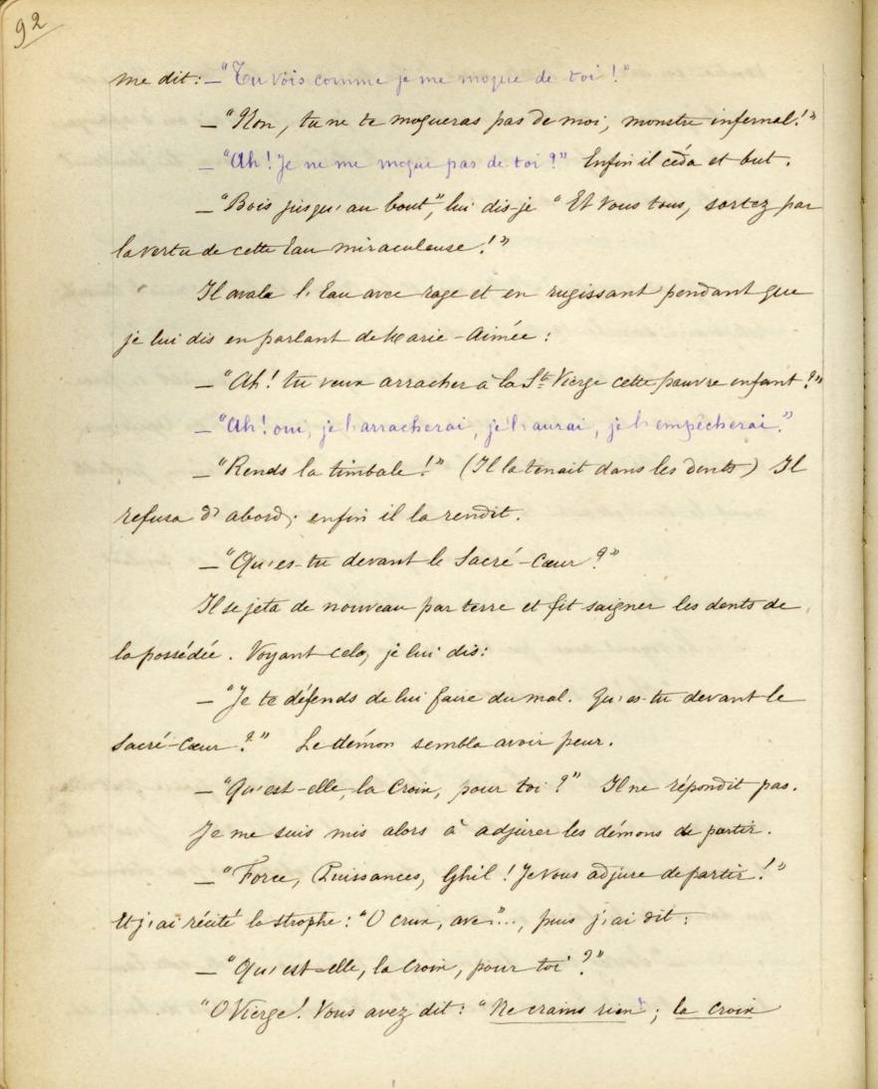 92
me dit: — "Tu vois comme je me moque de toi!"
— "Non, tu ne te moqueras pas de moi, monstre infernal!"
— "Ah! Je ne me moque pas de toi?" Enfin il céda et but.
— "Bois jusqu'au bout", lui dis-je "Et vous tous, sortez par
la vertu de cette Eau miraculeuse!"
Il avala l'Eau avec rage et en rugissant pendant que
je lui dis en parlant de Marie-Aimée:
— "Ah! tu veux arracher à la Ste Vierge cette pauvre enfant?"
— "Ah! oui, je l'arracherai, je l'aurai, je l'empêcherai."
— "Rends la timbale!" (Il la tenait dans les dents) Il
refusa d'abord; enfin il la rendit.
— "Qu'es-tu devant le Sacré-Cœur?"
Il se jeta de nouveau par terre et fit saigner les dents de
la possédée. Voyant cela, je lui dis:
— "Je te défends de lui faire du mal. Qu'es-tu devant le
Sacré-Cœur?" Le démon sembla avoir peur.
— "Qu'est-elle, la Croix, pour toi?" Il ne répondit pas.
Je me suis mis alors à adjurer les démons de partir.
— "Force, Puissances, Ghil! Je vous adjure de partir!"
Et j'ai récité la strophe: "O crux, ave"..., puis j'ai dit:
— "Qu'est-elle, la Croix, pour toi?"
"O Vierge! Vous avez dit: "Ne crains rien"; la croix